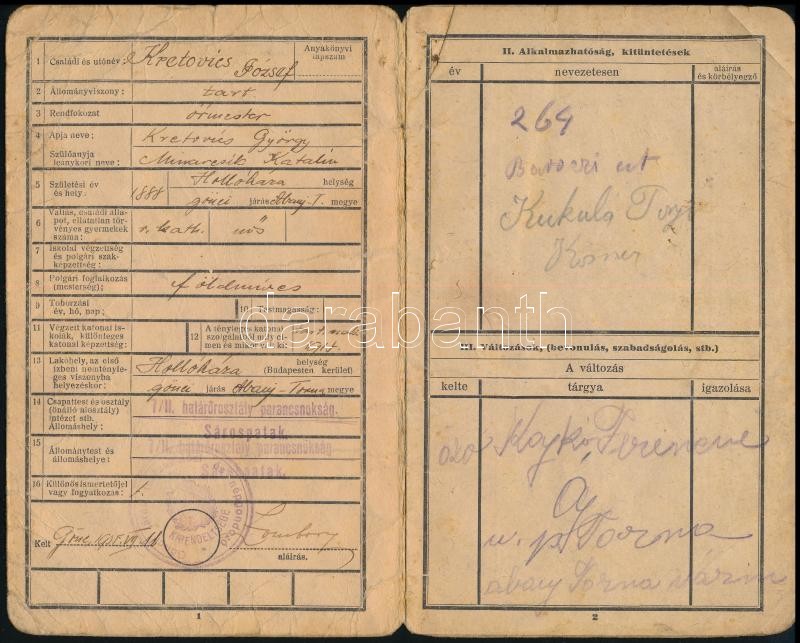 1 Családi és utónév: Kretovics József
Anyakönyvi lapszám
2 Állományviszony: tart.
3 Rendfokozat őrmester
4 Apja neve: Kretovics György
Szülőanyja leánykori neve: Katalin
5 Születési év és hely: 1888 Hollóháza helység
gönci járás Abauj-T. megye
6 Vallás, családi állapot, ellátatlan törvényes gyermekek száma: r. kath. nős
7 Iskolai végzettség és polgári szakképzettség:
8 Polgári foglalkozás (mesterség): földműves
9 Toborzási év, hó, nap:
10 Testmagasság:
11 Végzett katonai iskolák, különleges katonai képzettség:
12 A tényleges katonai szolgálatból mely címen és mikor vált ki:
13 Lakóhely, az első ízbeni nemtényleges viszonyba helyezéskor: Hollóháza helység
(Budapesten kerület)
gönci járás Abauj-Torna megye
14 Csapattest és osztály (önálló alosztály) intézet stb. Állomáshely:
7/II. határőrosztály parancsnokság.
Sárospatak.
15 Állománytest és állomáshelye:
7/II. határőrosztály parancsnokság
Sárospatak.
16 Különös ismertetőjel vagy fogyatkozás:
Kelt Gönc
aláírás.
1
II. Alkalmazhatóság, kitüntetések
év
nevezetesen
aláírás és körbélyegző
264
út
Kukula
III. Változások, (bevonulás, szabadságolás, stb.)
A változás
kelte
tárgya
igazolása
özv Kajkó Ferencné
u. p. Torna
abauj Torna várm
2
darabanth